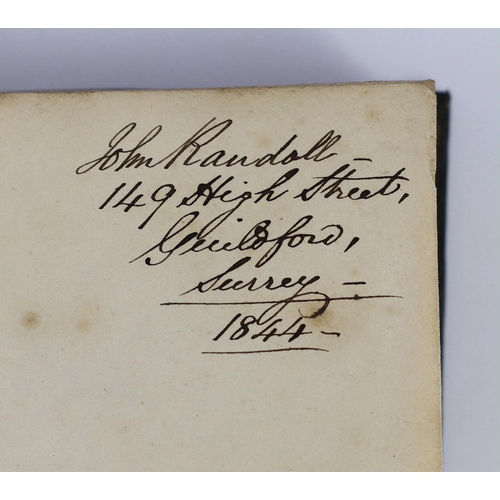 John Randall –
149 High Street,
Guildford,
Surrey –
1844 –